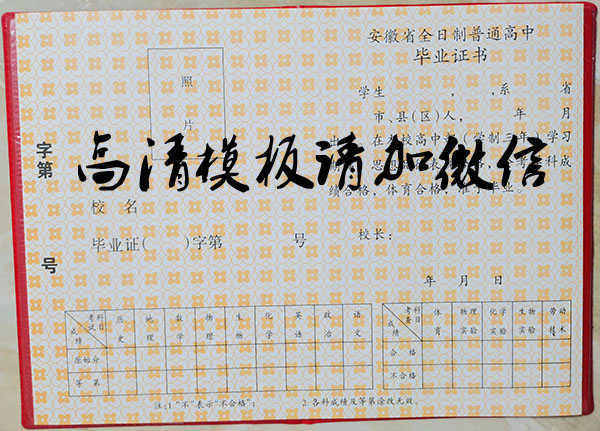 安徽省全日制普通高中
毕业证书
照
片
学生 ,系 省
市、县(区)人, 年 月
在 校高中 (学制三年)学习
科成
绩合格,体育合格,准予毕业。
高清模板请加微信
字第
号
校 名
毕业证( )字第 号
校长:
年 月 日
考试科目 成绩 历史 地理 数学 物理 生物 化学 英语 政治 语文
原始分
等第
考查科目 成绩 体育 物理实验 化学实验 生物实验 劳动技术
合格
不合格
注:1."不"表示"不合格"; 2.各科成绩及等第涂改无效。